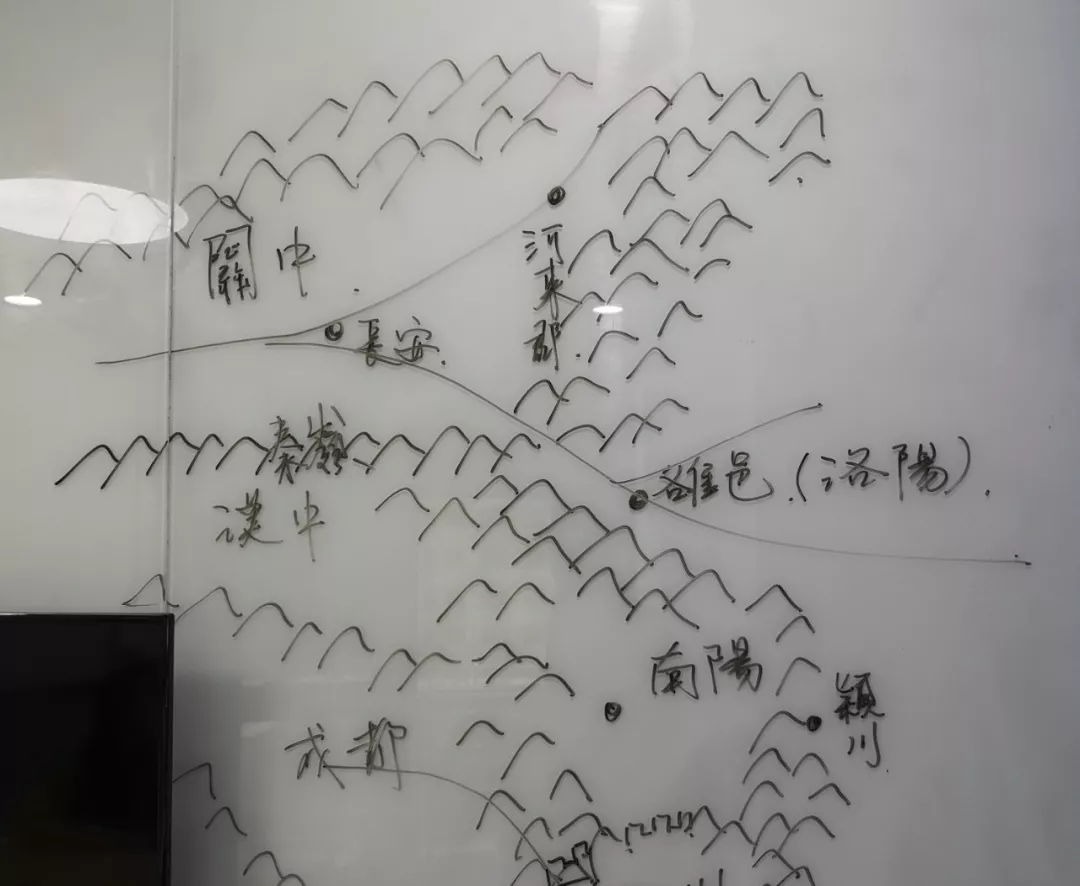 關中
河東郡.
長安.
秦嶺
雒邑.(洛陽).
漢中
南陽
潁川
成都